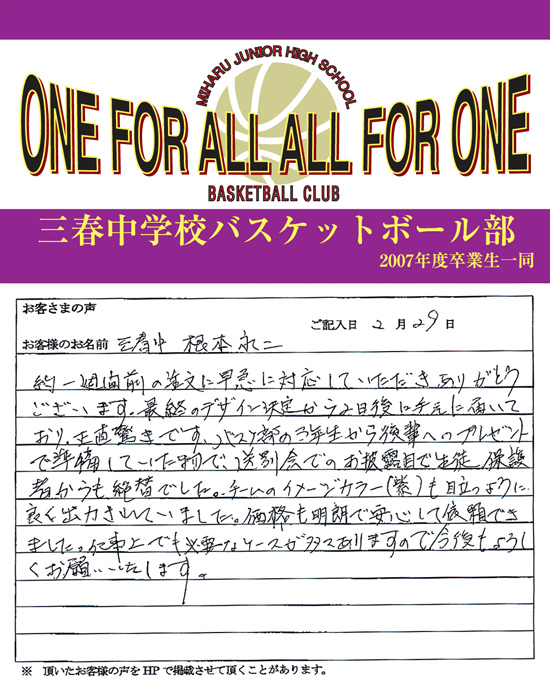 MIHARU JUNIOR HIGH SCHOOL
ONE FOR ALL ALL FOR ONE
BASKETBALL CLUB
三春中学校バスケットボール部
2007年度卒業生一同
お客さまの声
ご記入日 2月29日
お客様のお名前 三春中 根本永二
約一週間前の注文に早急に対応していただきありがとう
ございます。最終のデザイン決定から2日後に手元に届いて
おり、正直驚きです。バスケ部の3年生から後輩へのプレゼント
で準備していた物で、送別会でのお披露目で生徒、保護
者からも絶賛でした。チームのイメージカラー(紫)も目立つように
良く出力されていました。価格も明朗で安心して依頼でき
ました。仕事上でも必要なケースが多々ありますので今後もよろし
くお願いいたします。
※ 頂いたお客様の声をHPで掲載させて頂くことがあります。